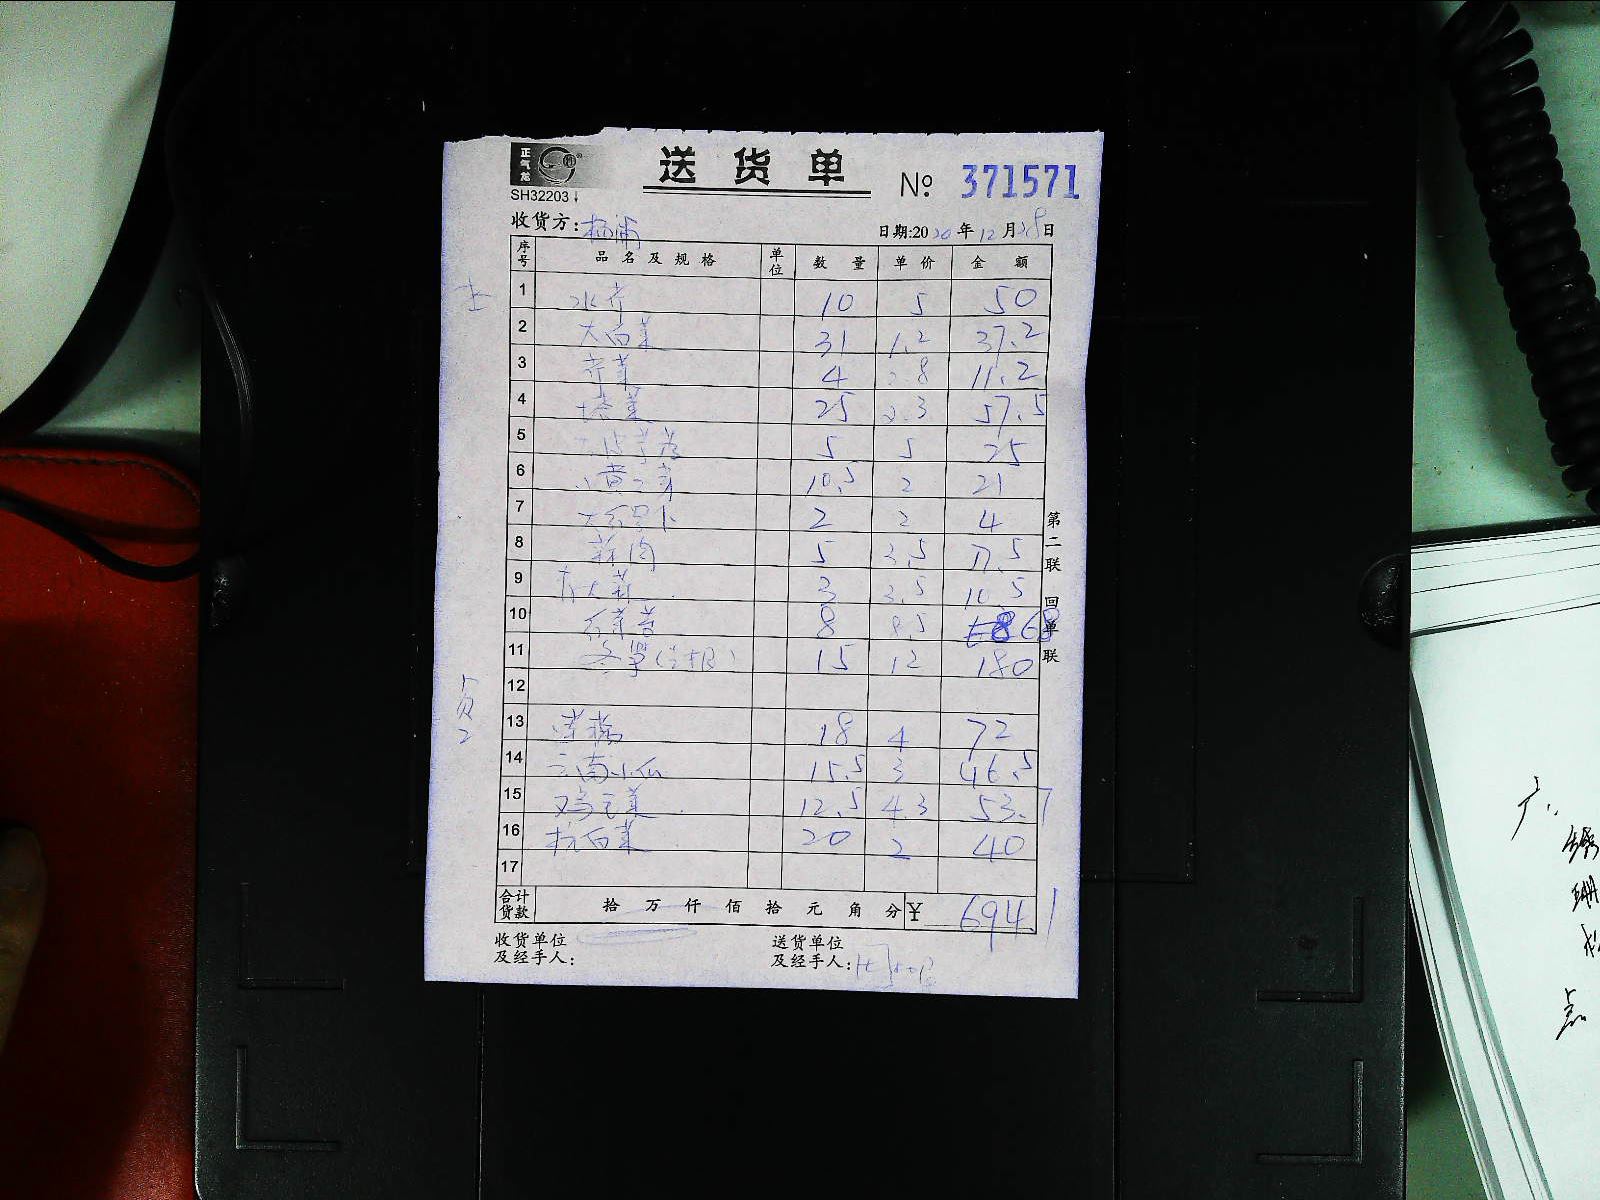 正气龙
SH32203
送货单
№ 371571
收货方: 杨浦
日期:2020年12月28日
序号 品名及规格 单位 数量 单价 金额
1 水芹 10 5 50
2 大白菜 31 1.2 37.2
3 芹菜 4 2.8 11.2
4 塔菜 25 2.3 57.5
5 5 5 25
6 小黄芽 10.5 2 21
7 大红萝卜 2 2 4
8 蒜肉 5 3.5 17.5
9 3 3.5 10.5
10 8 8.5 68
11 冬笋 15 12 180
12
13 莲藕 18 4 72
14 云南小瓜 15.5 3 46.5
15 鸡毛菜 12.5 4.3 53.7
16 杭白菜 20 2 40
17
合计货款 拾 万 仟 佰 拾 元 角 分 ¥ 694.1
收货单位及经手人:
送货单位及经手人:
第二联 回单联